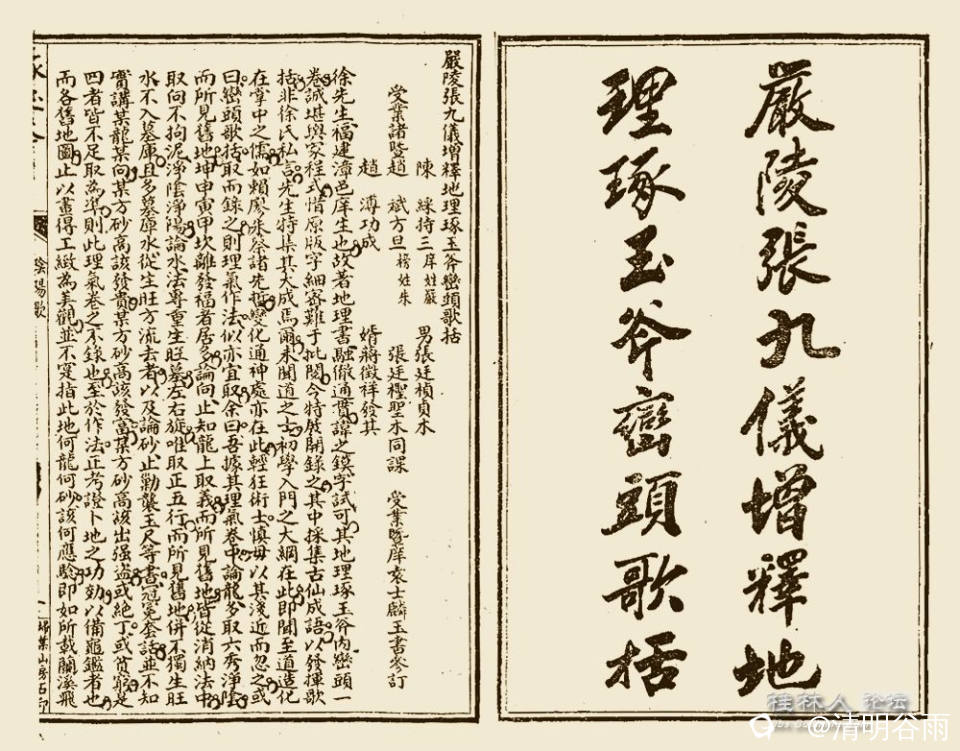 嚴陵張九儀增釋地
理琢玉斧巒頭歌括
嚴陵張九儀增釋地理琢玉斧巒頭歌括
陳 綵持三庠姓嚴 男張廷楨貞木
受業諸暨趙 斌方旦榜姓朱 張廷櫻聖木同課 受業暨庠袁士麟玉書參訂
趙 溥功成 婿蔣徵祥發其
徐先生福建漳邑庠生也故著地理書融徹通貫諱之鏌字試可其地理琢玉斧內巒頭一
卷誠堪輿家程式惜原版字細密難于批閱今特展開錄之其中採集古仙成語以發揮歌
括非徐氏私言先生特集其大成焉爾未聞道之士初學入門之大綱在此即聞至道造化
在掌中之儒如賴廖朱蔡諸先哲變化通神處亦在此輕狂術士慎毋以其淺近而忽之或
曰巒頭歌括取而錄之則理氣作法似亦宜取余曰吾據其理氣卷中論龍多取六秀淨陰
而所見舊地坤申寅甲坎離發福者居多論向止知龍上取義而所見舊地皆從消納法中
取向不拘泥淨陰淨陽論水法專重生旺墓左右旋唯取正五行而所見舊地併不獨生旺
水不入墓庫且多墓庫水從生旺方流去者以及論砂止勦襲玉尺等書冠冕套話並不知
實講某龍某向某方砂高該發貴某方砂高該發富某方砂高該出强盜或絕丁或貧窮是
四者皆不足取為準則此理氣卷之不錄也至於作法正考證卜地之功効以備龜鑑者也
而各舊地圖止以畫得工緻為美觀並不寔指此地何龍何砂該何應驗即如所載蘭溪飛
陰陽歌
掃葉山房石印
桂林人 论坛
@清明谷雨